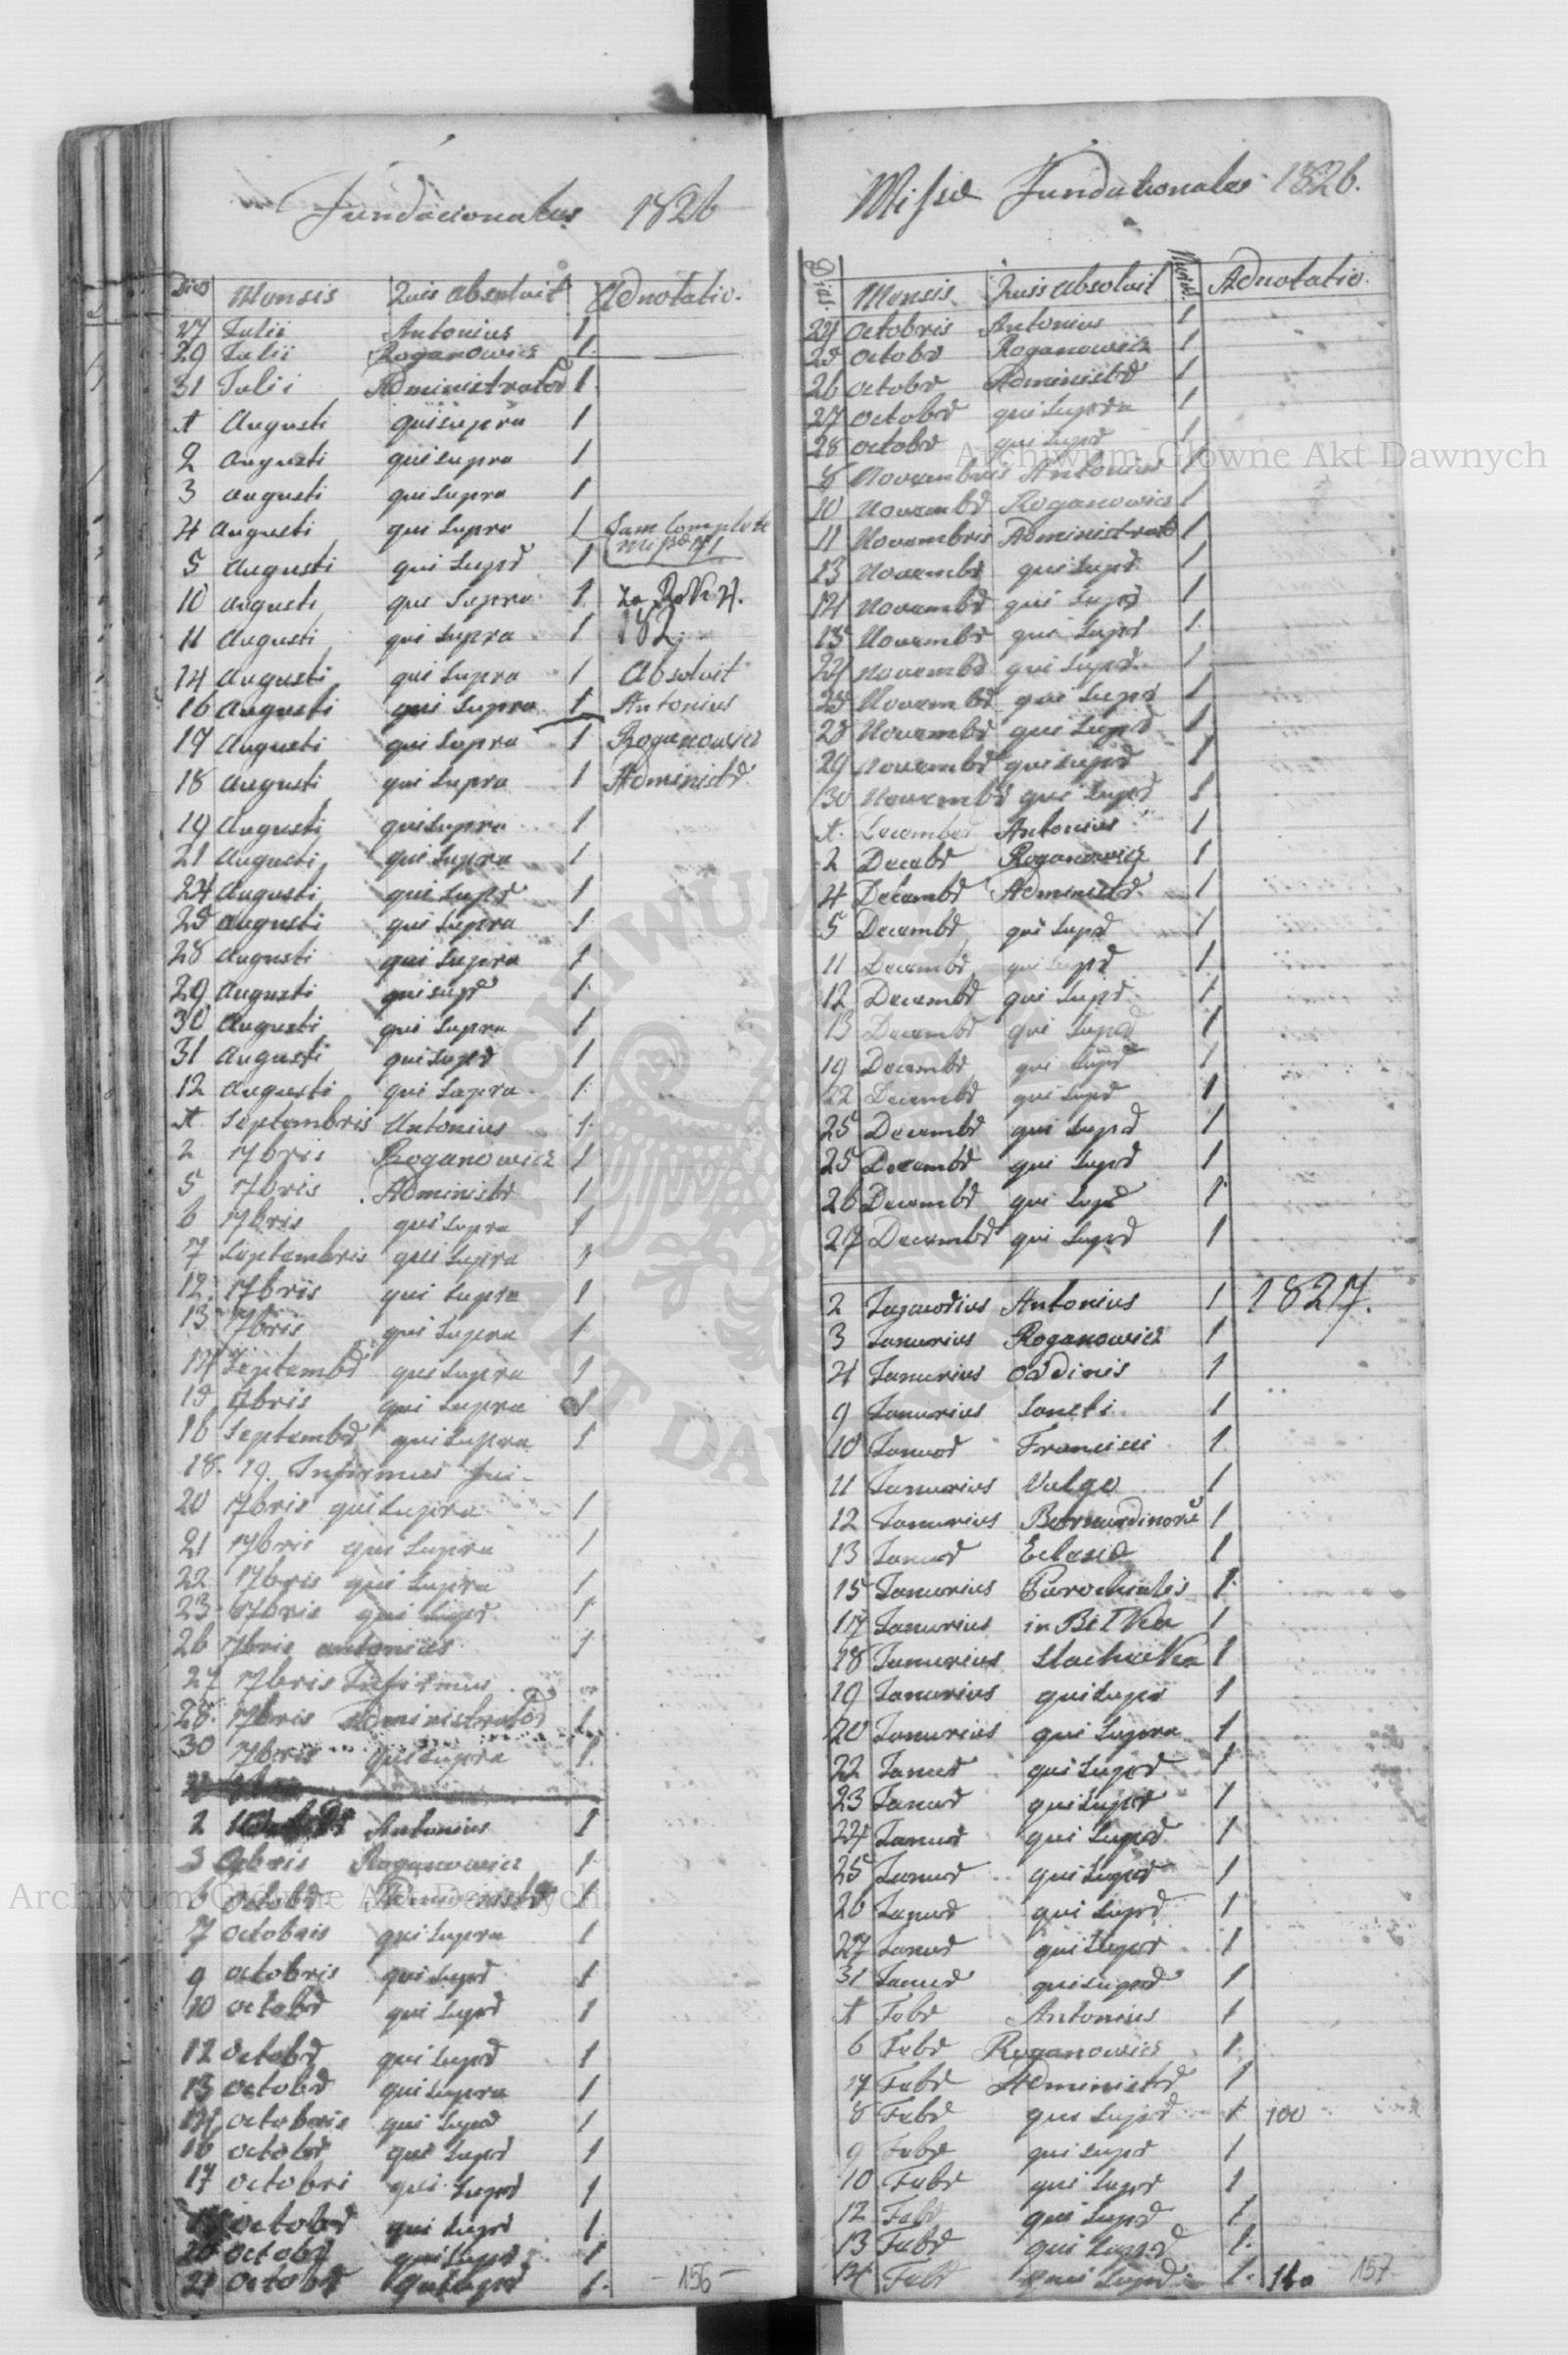 Fundacionales 1826
Dies Mensis Quis absolvit Adnotatio.
27 Julii Antonius 1
29 Julii Roganowicz 1
31 Julii Administrator 1
1 Augusti qui supra 1
2 Augusti qui supra 1
3 Augusti qui supra 1
4 Augusti qui supra 1 Jam complete
5 Augusti qui Suprd 1
10 Augusti qui Supra 1
11 Augusti qui Supra 1 182
14 Augusti qui Supra 1 Absolvit
16 Augusti qui Supra 1 Antonius
17 Augusti qui Supra 1 Roganowicz
18 Augusti qui Supra 1 Administr
19 Augusti qui Supra 1
21 Augusti qui Supra 1
24 Augusti qui Suprd 1
25 Augusti qui Supra 1
28 Augusti qui Supra 1
29 Augusti qui supr 1
30 Augusti qui Supra 1
31 Augusti qui Suprd 1
12 Augusti qui Supra 1
1 Septembris Antonius 1
2 7bris Roganowicz 1
5 7bris Administr 1
6 7bris qui Supra 1
7 Septembris qui Supra 1
12 7bris qui Supra 1
13 7bris qui Supra 1
14 Septembr qui Supra 1
15 7bris qui Supra 1
16 Septembr qui Supra 1
18. 19. Infirmus fui
20 7bris qui Supra 1
21 7bris qui Supra 1
22 7bris qui Supra 1
23 7bris qui Suprd 1
26 7bris Antonius 1
27 7bris Infirmus
28 7bris Administrator 1
30 7bris qui Supra 1
2 Antonius 1
3 Roganowicz 1
6 Octobr Administr 1
7 Octobris qui Supra 1
9 Octobris qui Suprd 1
10 Octobr qui Suprd 1
12 Octobr qui Suprd 1
13 Octobr qui Supra 1
14 Octobris qui Suprd 1
16 Octobr qui Suprd 1
17 Octobri qui Suprd 1
Octobr qui Suprd 1
20 Octobr qui Suprd 1
21 Octobr qui Suprd 1
- 156 -
Missae Fundationales 1826.
Dies. Mensis Quis absolvit Adnotatio.
24 Octobris Antonius 1
25 Octobr Roganowicz 1
26 Octobr Administr 1
27 Octobr qui Supra 1
28 Octobr qui Suprd 1
8 Novembris Antonius 1
10 Novembr Roganowicz 1
11 Novembris Administrato 1
13 Novembr qui Suprd 1
14 Novembr qui Suprd 1
15 Novembr qui Suprd 1
24 Novembr qui Suprd 1
25 Novembr qui Suprd 1
28 Novembr qui Suprd 1
29 Novembr qui Suprd 1
30 Novembr qui Suprd 1
1 Decembr Antonius 1
2 Decebr Roganowicz 1
4 Decembr Administr 1
5 Decembr qui Suprd 1
11 Decembr qui Suprd 1
12 Decembr qui Suprd 1
13 Decembr qui Suprd 1
19 Decembr qui Suprd 1
22 Decembr qui Suprd 1
25 Decembr qui Suprd 1
25 Decembr qui Suprd 1
26 Decembr qui Supr 1
27 Decembr qui Suprd 1
2 Antonius 1 1827.
3 Janurius Roganowicz 1
4 Janurius Ordinis 1
9 Janurius Sancti 1
10 Januar Francisci 1
11 Janurius Vulgo 1
12 Janurius Bernardinorū 1
13 Januar Eclasia 1
15 Janurius Parochialis 1
17 Janurius 1
18 Janurius 1
19 Janurius qui Supra 1
20 Janurius qui Supra 1
22 Januar qui Suprd 1
23 Januar qui Suprd 1
24 Januar qui Suprd 1
25 Januar qui Suprd 1
26 Januar qui Suprd 1
27 Januar qui Suprd 1
31 Januar qui Suprd 1
1 Febr Antonius 1
6 Febr Roganowicz 1
7 Febr Administr 1
8 Febr qui Suprd 1 100
9 Febr qui Suprd 1
10 Febr qui Suprd 1
12 Febr qui Suprd 1
13 Febr qui Suprd 1
14 Febr qui Suprd 1
157
Archiwum Główne Akt Dawnych
Archiwum Główne Akt Dawnych